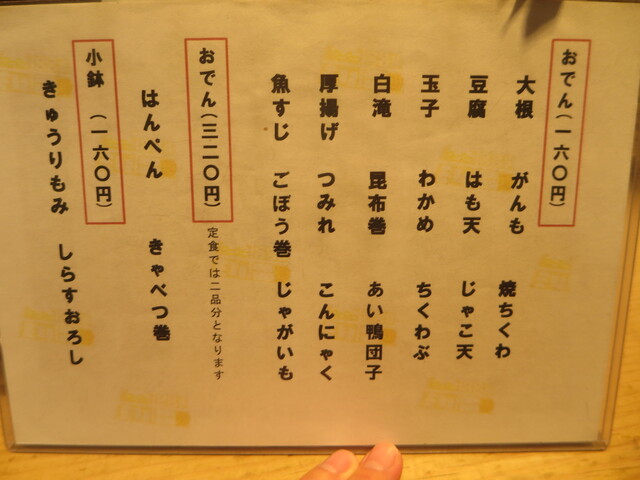 おでん（一六〇円）
大根　がんも　焼ちくわ
豆腐　はも天　じゃこ天
玉子　わかめ　ちくわぶ
白滝　昆布巻　あい鴨団子
厚揚げ　つみれ　こんにゃく
魚すじ　ごぼう巻　じゃがいも
おでん（三二〇円）
定食では二品分となります
はんぺん　きゃべつ巻
小鉢　（一六〇円）
きゅうりもみ　しらすおろし